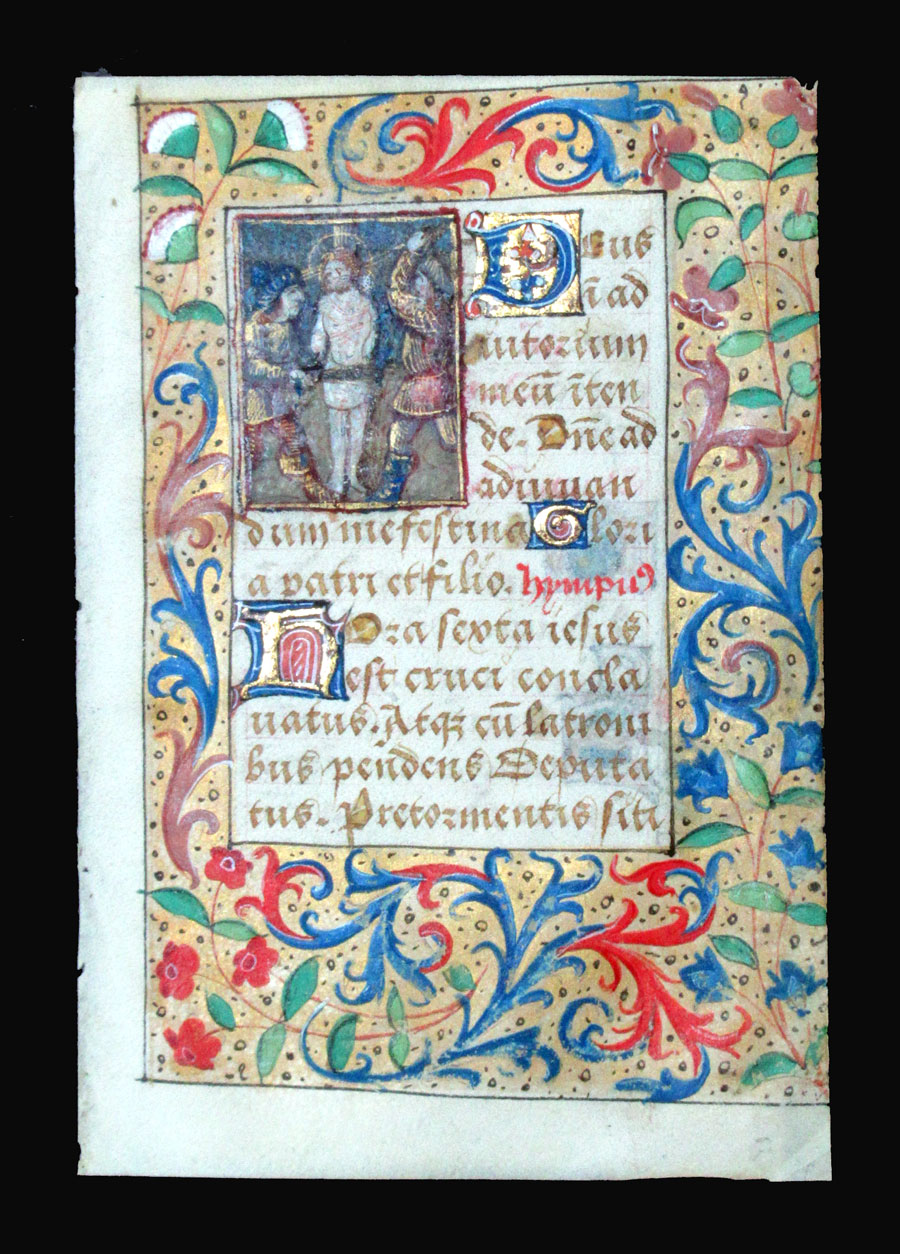 Deus
ī ad
iutorium
meū īten
de. Dn̄e ad
adiuuan
dum me festina Glori
a patri et filio. hympnꝰ
Hora sexta iesus
est cruci concla
uatus. Atqꝫ cū latroni
bus pendens Deputa
tus. Pre tormentis siti